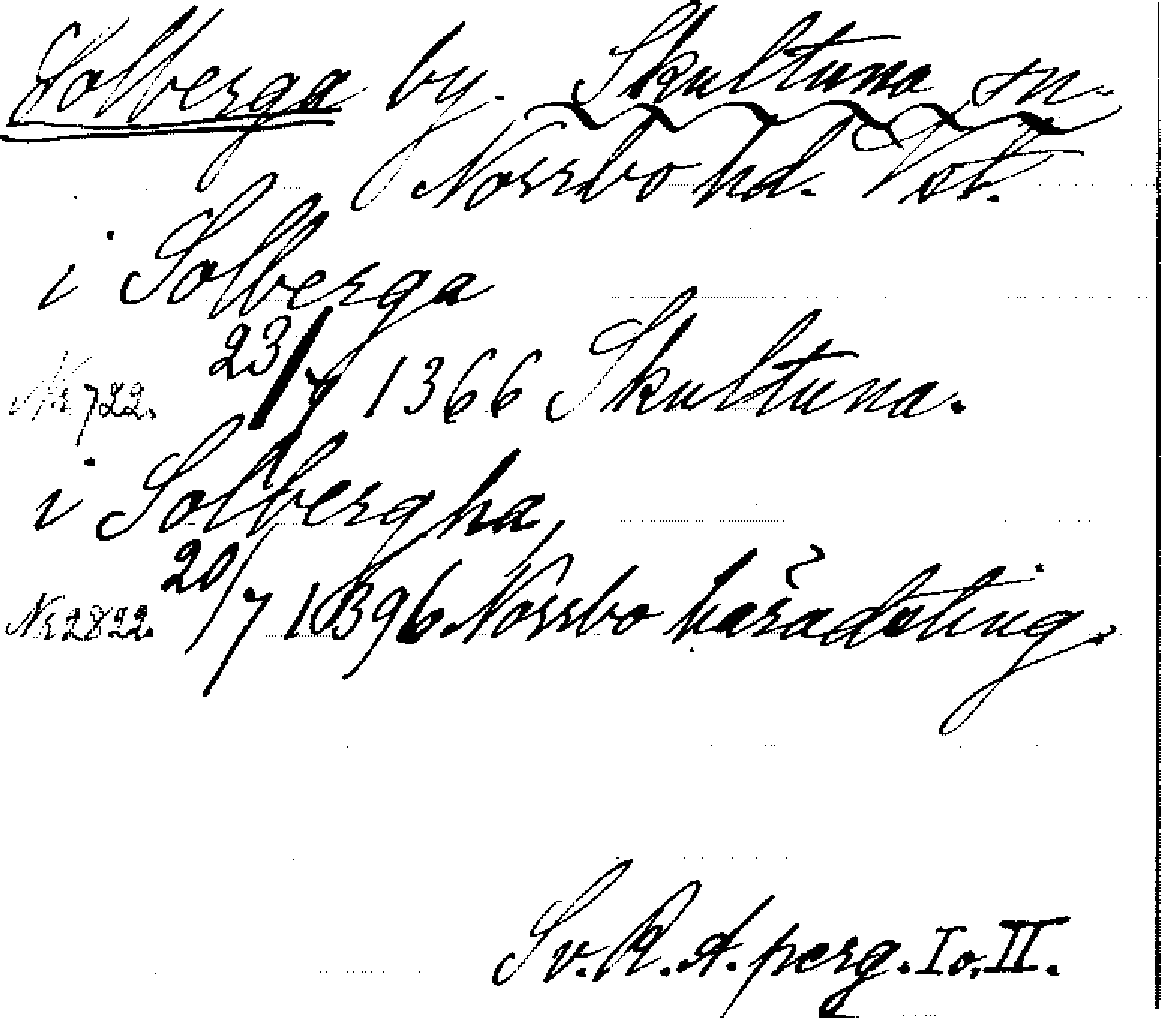 Solberga by. Skultuna sn.
Norrbo hd. Vstm.
i Solberga
Nr 722. 23/7 1366 Skultuna.
i Solbergha,
Nr 2822. 20/7 1396 Norrbo häradsting.
Sv. R. A. perg. I o. II.